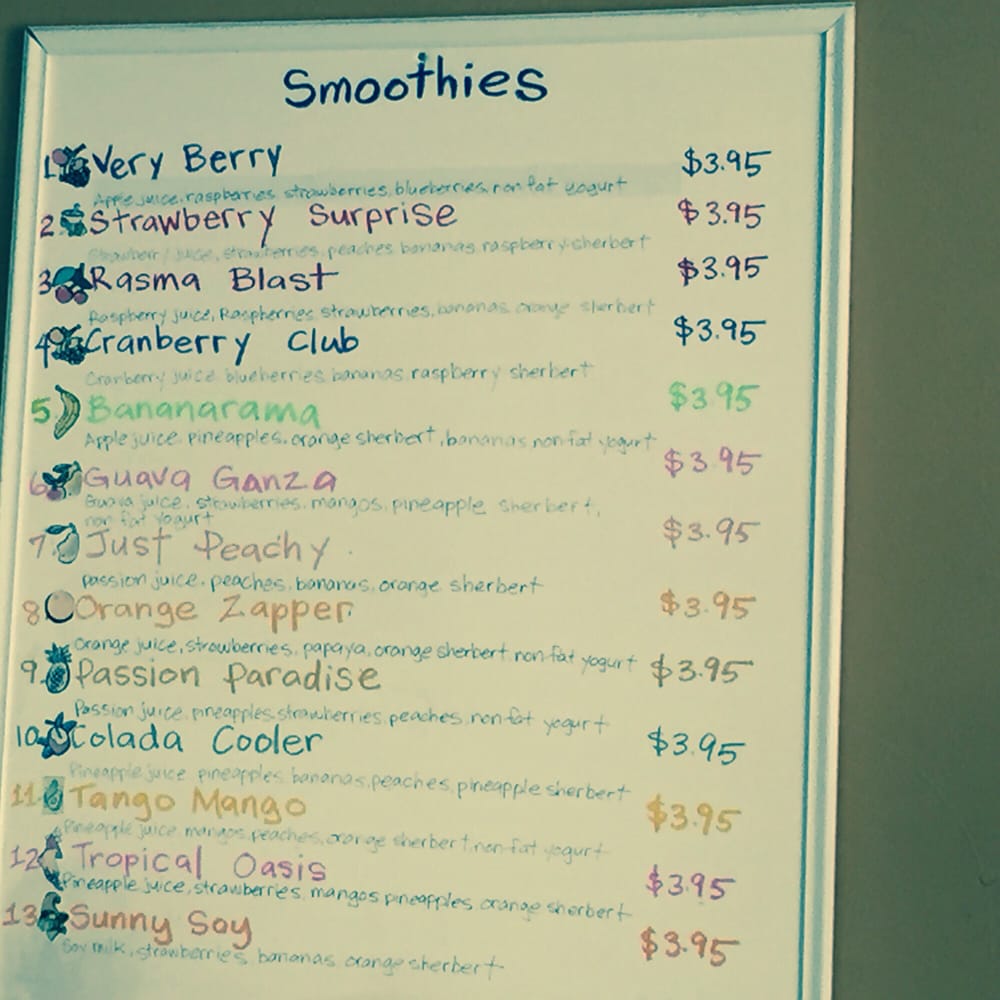 Smoothies
1. Very Berry $3.95
Apple juice, raspberries, strawberries, blueberries, non fat yogurt
2. Strawberry Surprise $3.95
Strawberry juice, strawberries, peaches bananas, raspberry sherbert
3. Rasma Blast $3.95
Raspberry juice, Raspberries, strawberries, bananas, orange sherbert
4. Cranberry Club $3.95
Cranberry juice blueberries bananas, raspberry sherbert
5. Bananarama $3.95
Apple juice, pineapples, orange sherbert, bananas, non fat yogurt
6. Guava Ganza $3.95
Guava juice, strawberries, mangos, pineapple sherbert,
non fat yogurt
7. Just Peachy $3.95
passion juice, peaches, bananas, orange sherbert
8. Orange Zapper $3.95
Orange juice, strawberries, papaya, orange sherbert, non fat yogurt
9. Passion Paradise $3.95
Passion juice, pineapples, strawberries, peaches, non fat yogurt
10. Colada Cooler $3.95
Pineapple juice pineapples, bananas, peaches, pineapple sherbert
11. Tango Mango $3.95
Pineapple juice mangos, peaches, orange sherbert, non-fat yogurt
12. Tropical Oasis $3.95
Pineapple juice, strawberries, mangos pineapples, orange sherbert
13. Sunny Soy $3.95
Soy milk, strawberries, bananas orange sherbert